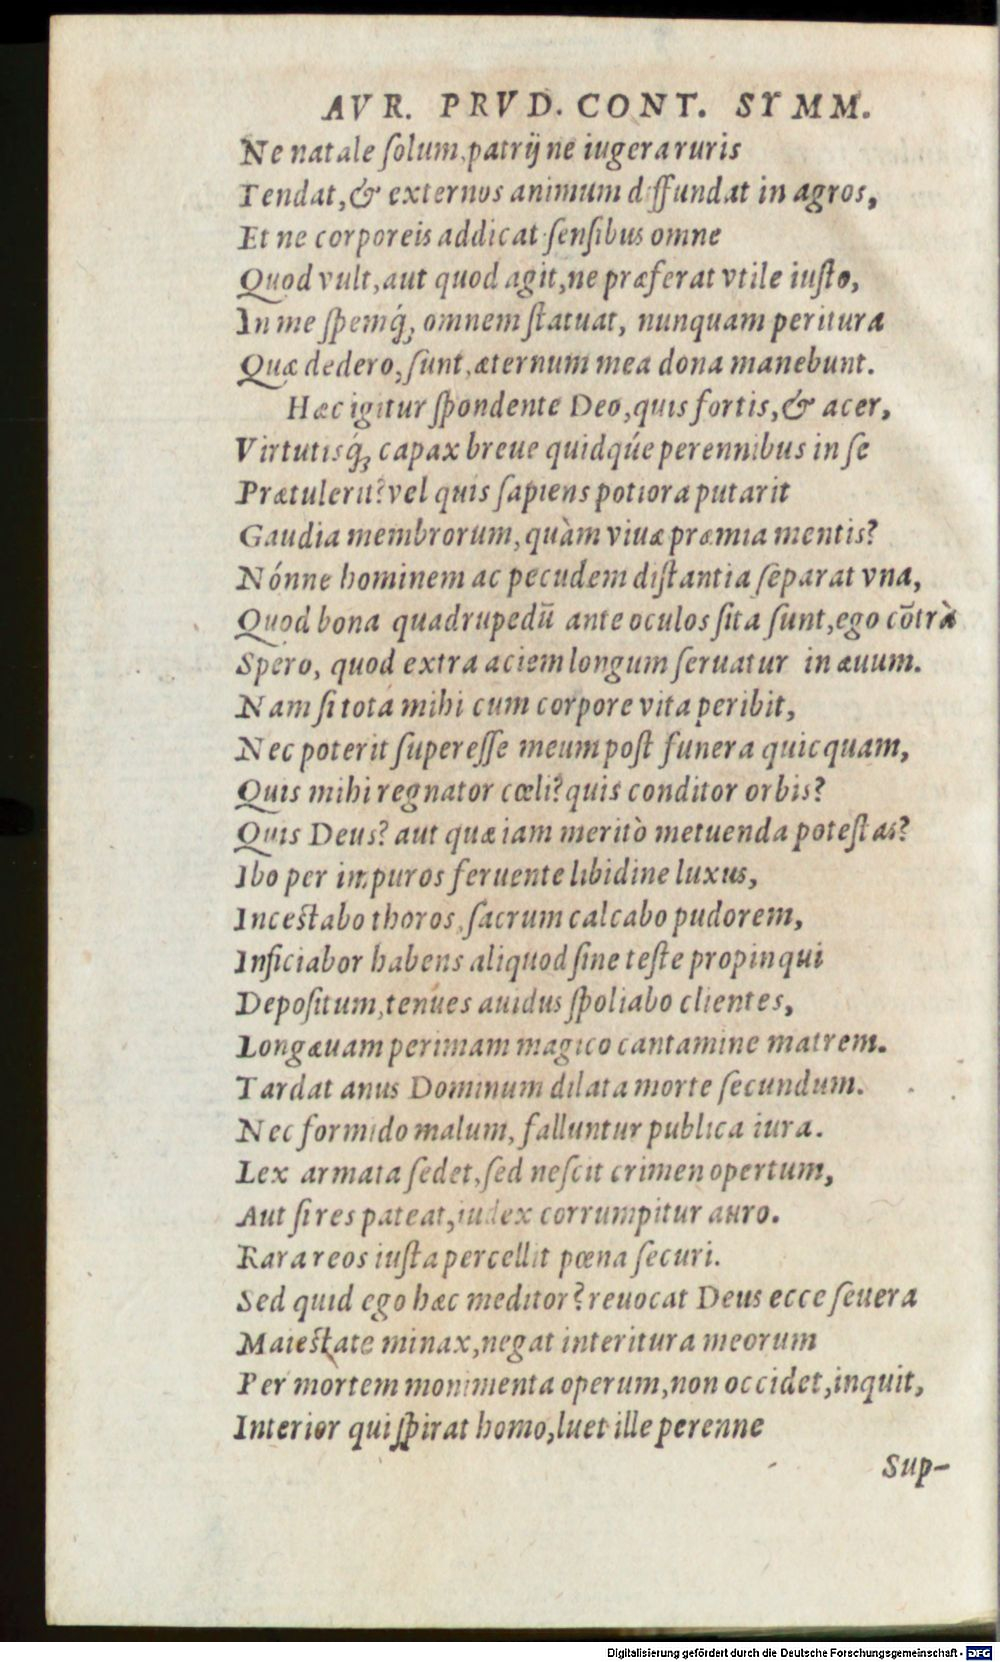 AVR. PRVD. CONT. SYMM.
Ne natale ſolum, patrij ne iugera ruris
Tendat, & externos animum diffundat in agros,
Et ne corporeis addicat ſenſibus omne
Quod vult, aut quod agit, ne præferat vtile iuſto,
In me ſpemq́; omnem ſtatuat, nunquam peritura
Quæ dedero, ſunt, æternum mea dona manebunt.
Hæc igitur ſpondente Deo, quis fortis, & acer,
Virtutisq́; capax breue quidqúe perennibus in ſe
Prætulerit? vel quis ſapiens potiora putarit
Gaudia membrorum, quàm viuæ præmia mentis?
Nónne hominem ac pecudem diſtantia ſeparat vna,
Quod bona quadrupedū ante oculos ſita ſunt, ego cōtrà
Spero, quod extra aciem longum ſeruatur in æuum.
Nam ſi tota mihi cum corpore vita peribit,
Nec poterit ſupereſſe meum poſt funera quicquam,
Quis mihi regnator cœli? quis conditor orbis?
Quis Deus? aut quæ iam meritò metuenda poteſtas?
Ibo per impuros feruente libidine luxus,
Inceſtabo thoros, ſacrum calcabo pudorem,
Inficiabor habens aliquod ſine teſte propinqui
Depoſitum, tenues auidus ſpoliabo clientes,
Longæuam perimam magico cantamine matrem.
Tardat anus Dominum dilata morte ſecundum.
Nec formido malum, falluntur publica iura.
Lex armata ſedet, ſed neſcit crimen opertum,
Aut ſi res pateat, iudex corrumpitur auro.
Rara reos iuſta percellit pœna ſecuri.
Sed quid ego hæc meditor? reuocat Deus ecce ſeuera
Maieſtate minax, negat interitura meorum
Per mortem monimenta operum, non occidet, inquit,
Interior qui ſpirat homo, luet ille perenne
Sup-
Digitalisierung gefördert durch die Deutsche Forschungsgemeinschaft - DFG